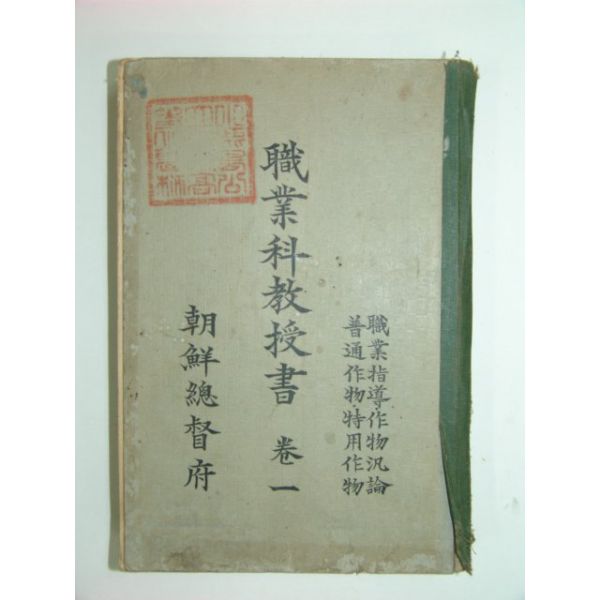 職業指導・作物汎論
普通作物・特用作物
職業科教授書 卷一
朝鮮總督府